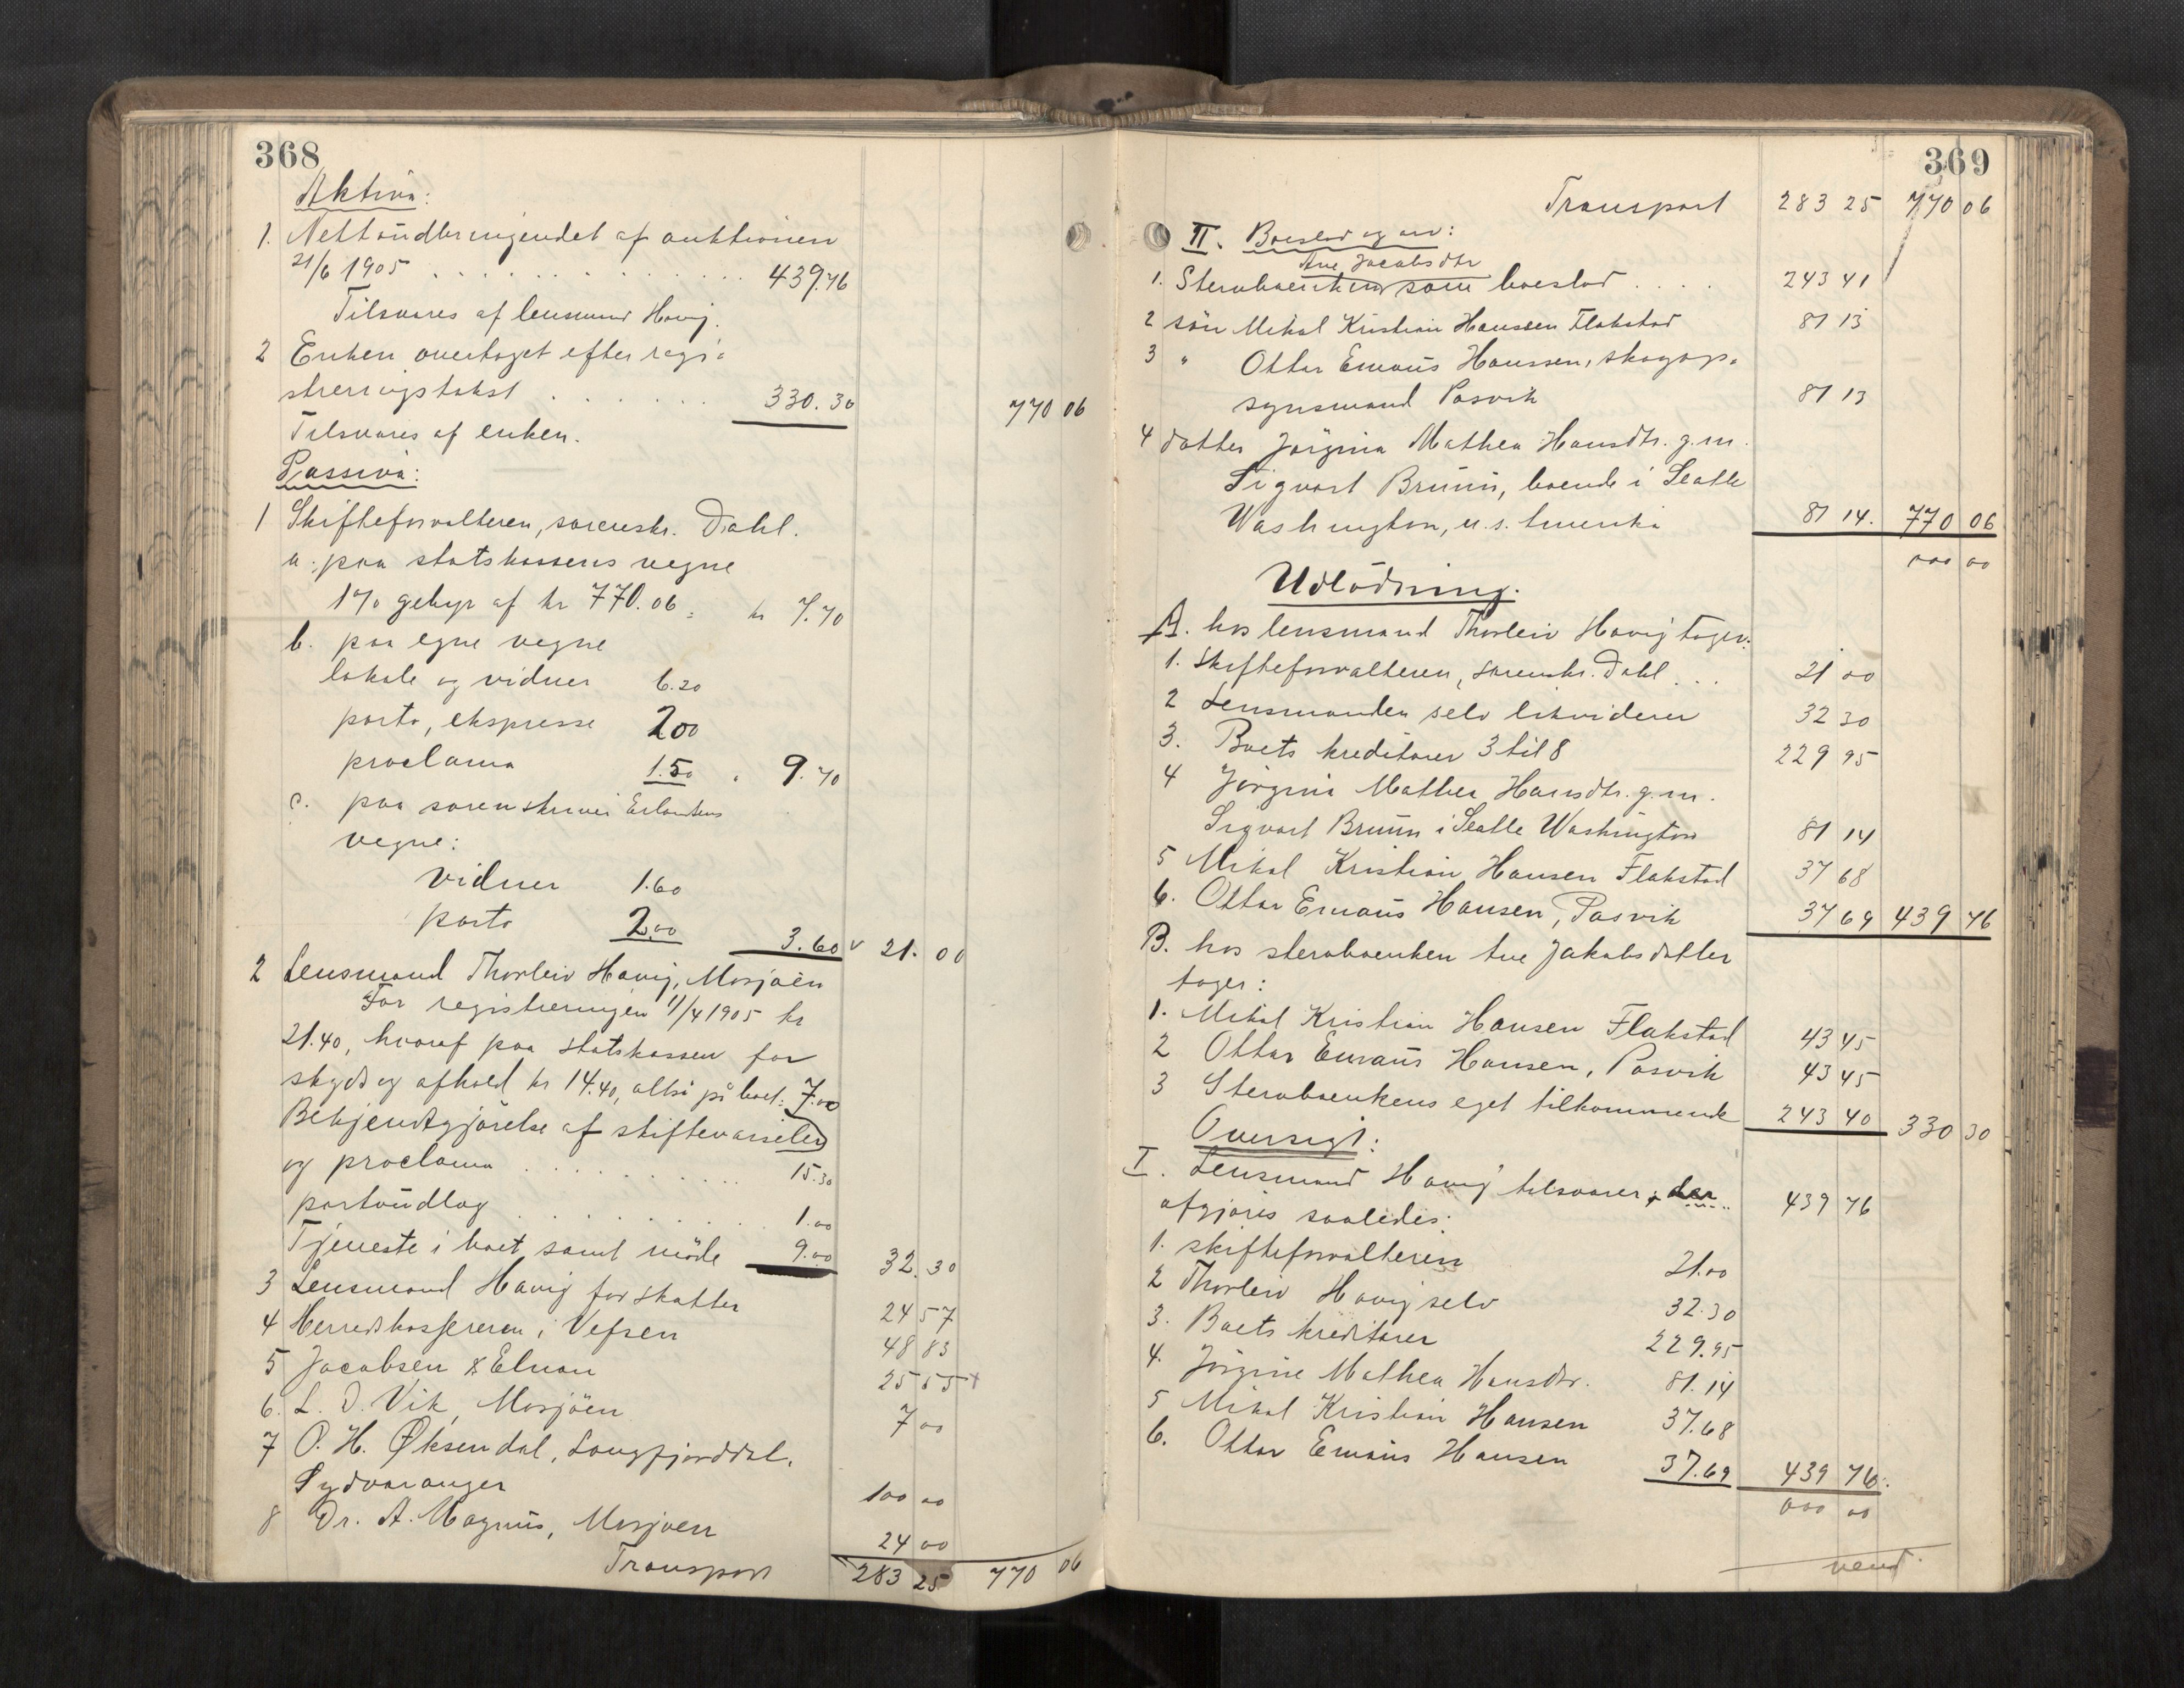 368
Aktiva:
1. Nettoudbringendet af auktionen
21/6 1905 . . . . . . . . . . . . . 439.76
Tilsvares af lensmand Havig.
2 Enken overtaget efter regi-
streringstakst . . . . . . . 330.30 770 06
Tilsvares af enken.
Passiva:
1 Skifteforvalteren, sorenskr. Dahl.
a. paa statskassens vegne
1% gebyr af kr 770.06 = kr 7.70
b. paa egne vegne
lokale og vidner 6.20
porto, ekspresse 2.00
proclama 1.50 " 9.70
c. paa sorenskriver Erlandsens
vegne:
vidner 1.60
porto 2.00 3.60 v 21.00
2 Lensmand Thorleiv Havig, Mosjøen
For registreringen 11/4 1905 kr
21.40, hvoraf paa statskassen for
skyds og ophold kr 14.40, altså på boet: 7.00
Bekjendtgjörelse af skiftevarselen
og proclama . . . . . . . . . 15.30
portoudlæg . . . . . . . . . . 1.00
Tjeneste i boet samt möde 9.00 32.30
3 Lensmand Havig for skatter 24 57
4 Herredskassereren i Vefsen 48 83
5 Jacobsen & Elnan 25 55
6. L. D. Vik, Mosjöen 7 00
7 O. H. Øksendal, Langfjorddal,
Sydvaranger 100 00
8 Dr. A. Magnus, Mosjøen 24 00
Transport 283 25 770 06
369
Transport 283 25 770 06
II. Boeslod og arv:
Ane Jacobsdtr
1. Stervboenken som boeslod . . . . 243 41
2 sön Mikal Kristian Hanssen Flakstad 81 13
3 " Ottar Emaus Hanssen, skogop-
synsmand Pasvik 81 13
4 datter Jörgina Mathea Hansdtr. g.m.
Sigvart Bruun, boende i Seatle
Washington, u.s. Amerika 81 14. 770 06
000 00
Udlödning.
A. hos lensmand Thorleiv Havig tager:
1. Skifteforvalteren, sorenskr. Dahl . . . 21 00
2 Lensmanden selv likviderer 32 30
3. Boets kreditorer 3 til 8 229 95
4 Jörgina Mathea Hansdtr. g.m.
Sigvart Bruun i Seatle Washington 81 14
5 Mikal Kristian Hansen Flakstad 37 68
6. Ottar Emaus Hansen, Pasvik 37 69 439 76
B. hos stervboenken Ane Jakobsdatter
tager:
1. Mikal Kristian Hansen Flakstad 43 45
2 Ottar Emaus Hansen, Pasvik 43 45
3 Stervboenkens eget tilkommende 243 40 330 30
Oversigt:
I. Lensmand Havig tilsvarer, der 439 76
afgjöres saaledes:
1. skifteforvalteren 21.00
2 Thorleiv Havig selv 32.30
3. Boets kreditorer 229.95
4. Jörgine Mathea Hansdtr. 81.14
5 Mikal Kristian Hansen 37.68
6. Ottar Emaus Hansen 37.69 439 76.
000 00
vend.